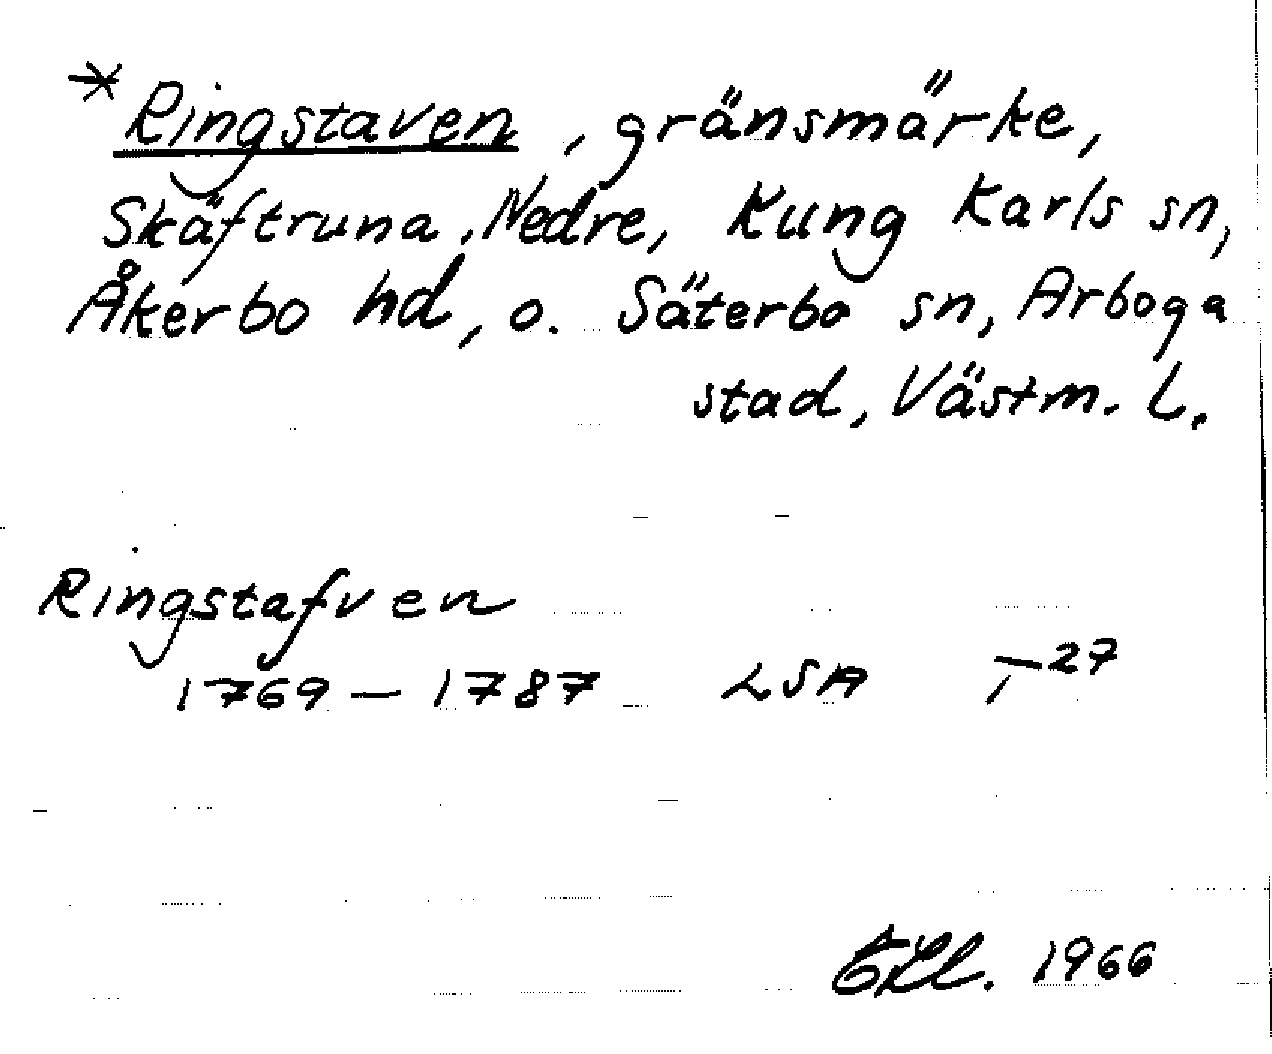 * Ringstaven, gränsmärke,
Skäftruna, Nedre, Kung Karls sn,
Åkerbo hd, o. Säterbo sn, Arboga
stad, Västm. L.
Ringstafven
1769 – 1787 LSA 27
1966